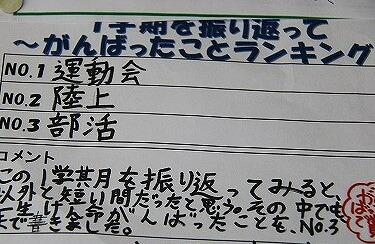 1学期を振り返って
～がんばったことランキング
NO.1 運動会
NO.2 陸上
NO.3 部活
コメント
この1学期を振り返ってみると、
以外と短い間だったと思う。その中でも
一生けん命がんばったことを、No.3
まで書きました。